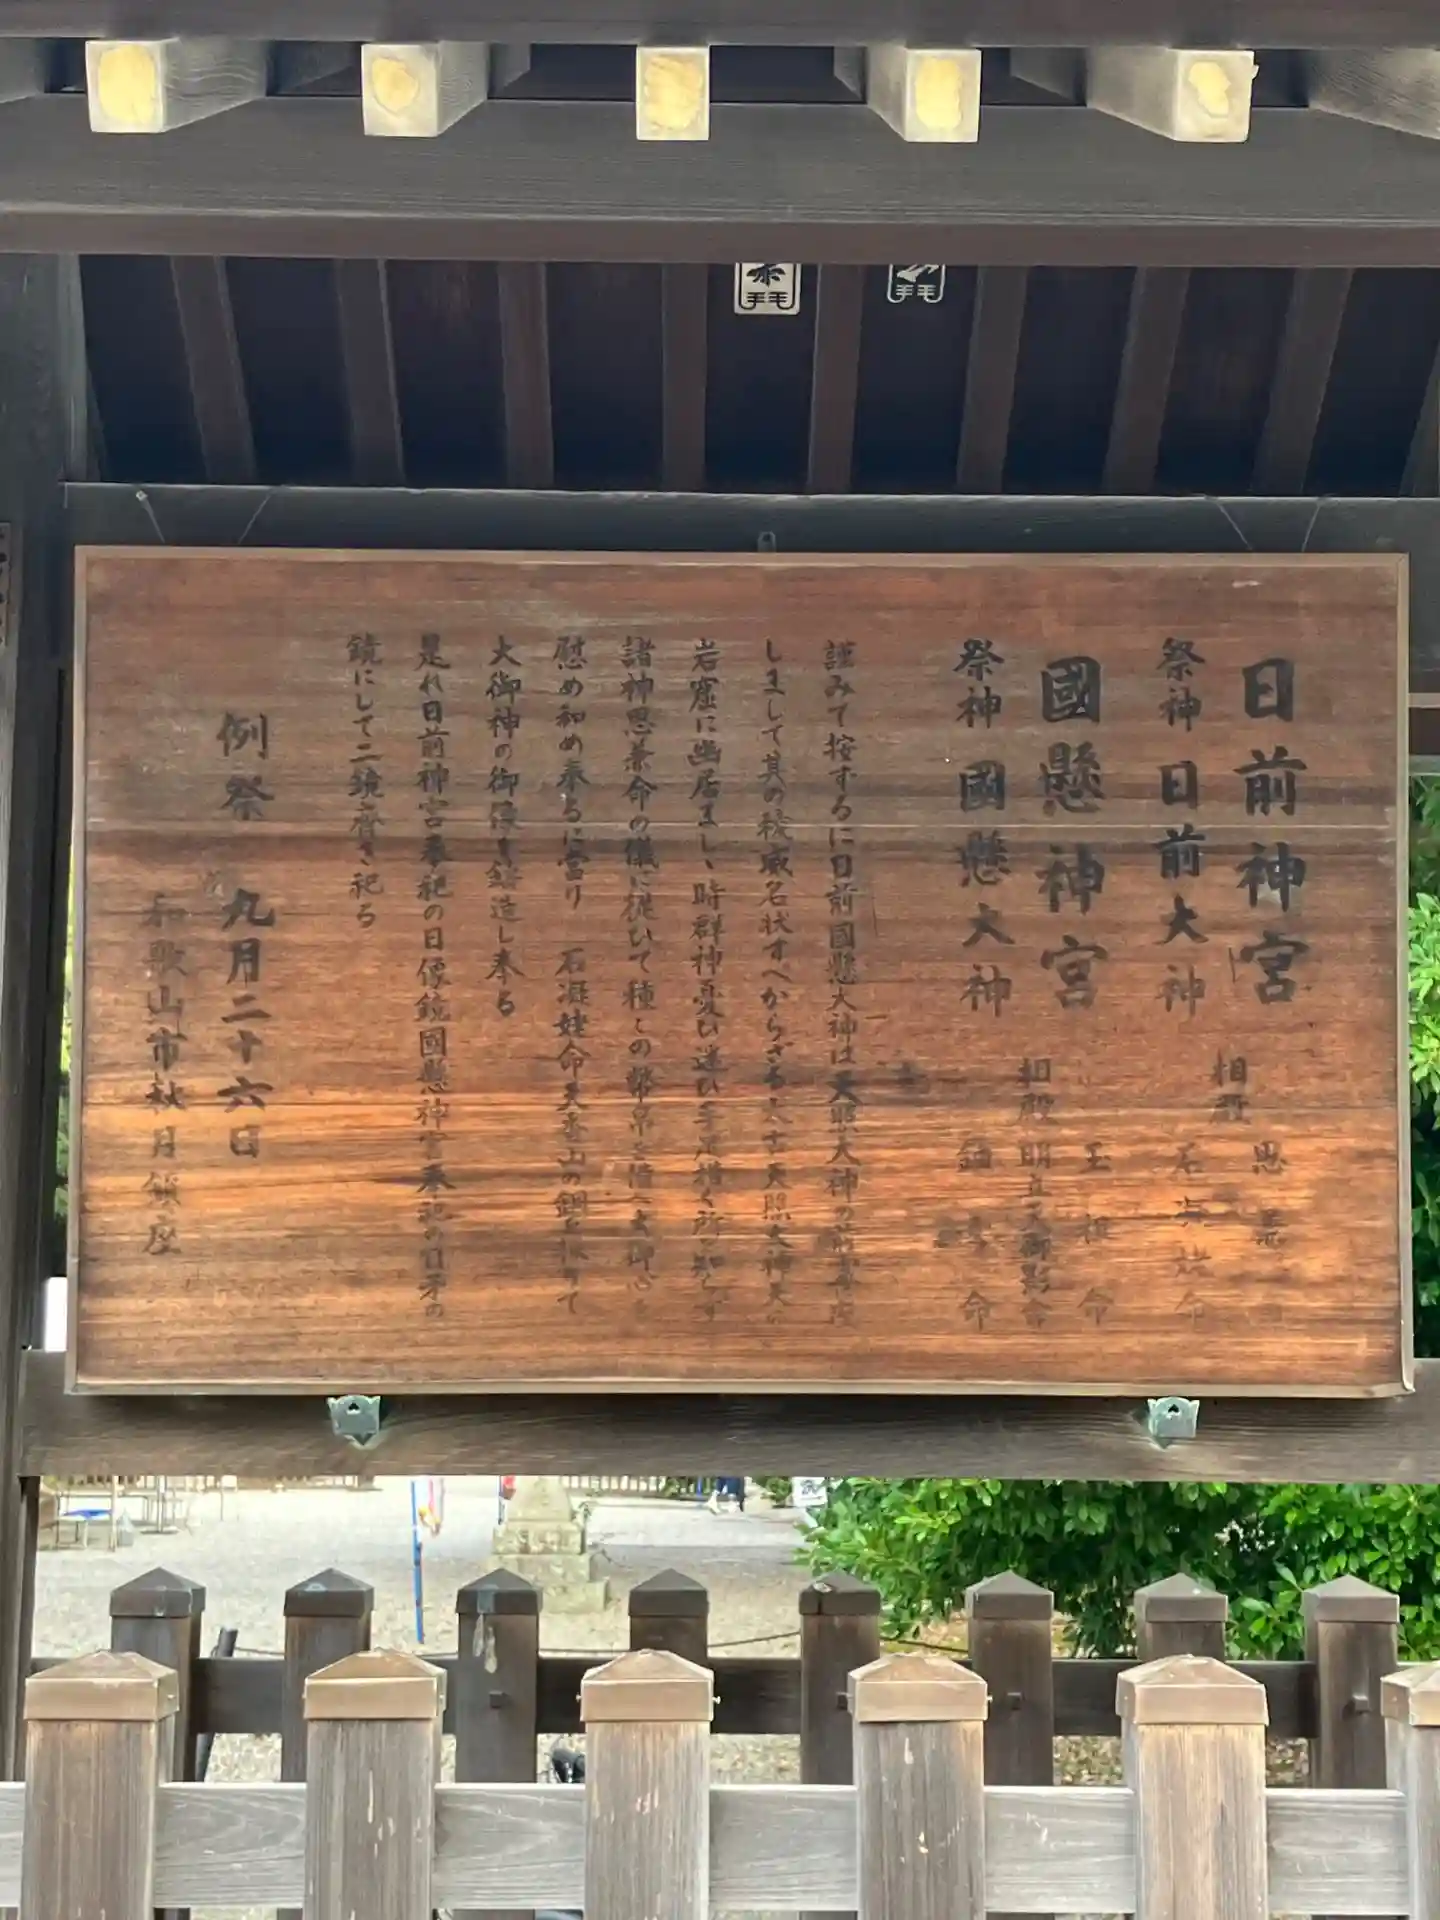 日前神宮
祭神 日前大神
相殿 思兼命
石凝姥命
國懸神宮
祭神 國懸大神
相殿 玉祖命
明立天御影命
鈿女命
謹みて按ずるに日前國懸大神は天照大神の前霊に座
しまして其の稜威名状すべからざる太古天照大神天の
岩窟に幽居ましゝ時群神憂ひ迷ひ手足措く所を知らず
諸神思兼命の議に従ひて種々の幣帛を備へ大御心を
慰め和め奉るに當り 石凝姥命天香山の銅を採りて
大御神の御像を鋳造し奉る
是れ日前神宮奉祀の日像鏡國懸神宮奉祀の日矛の
鏡にして二鏡齊き祀る
例祭 九月二十六日
和歌山市秋月鎮座